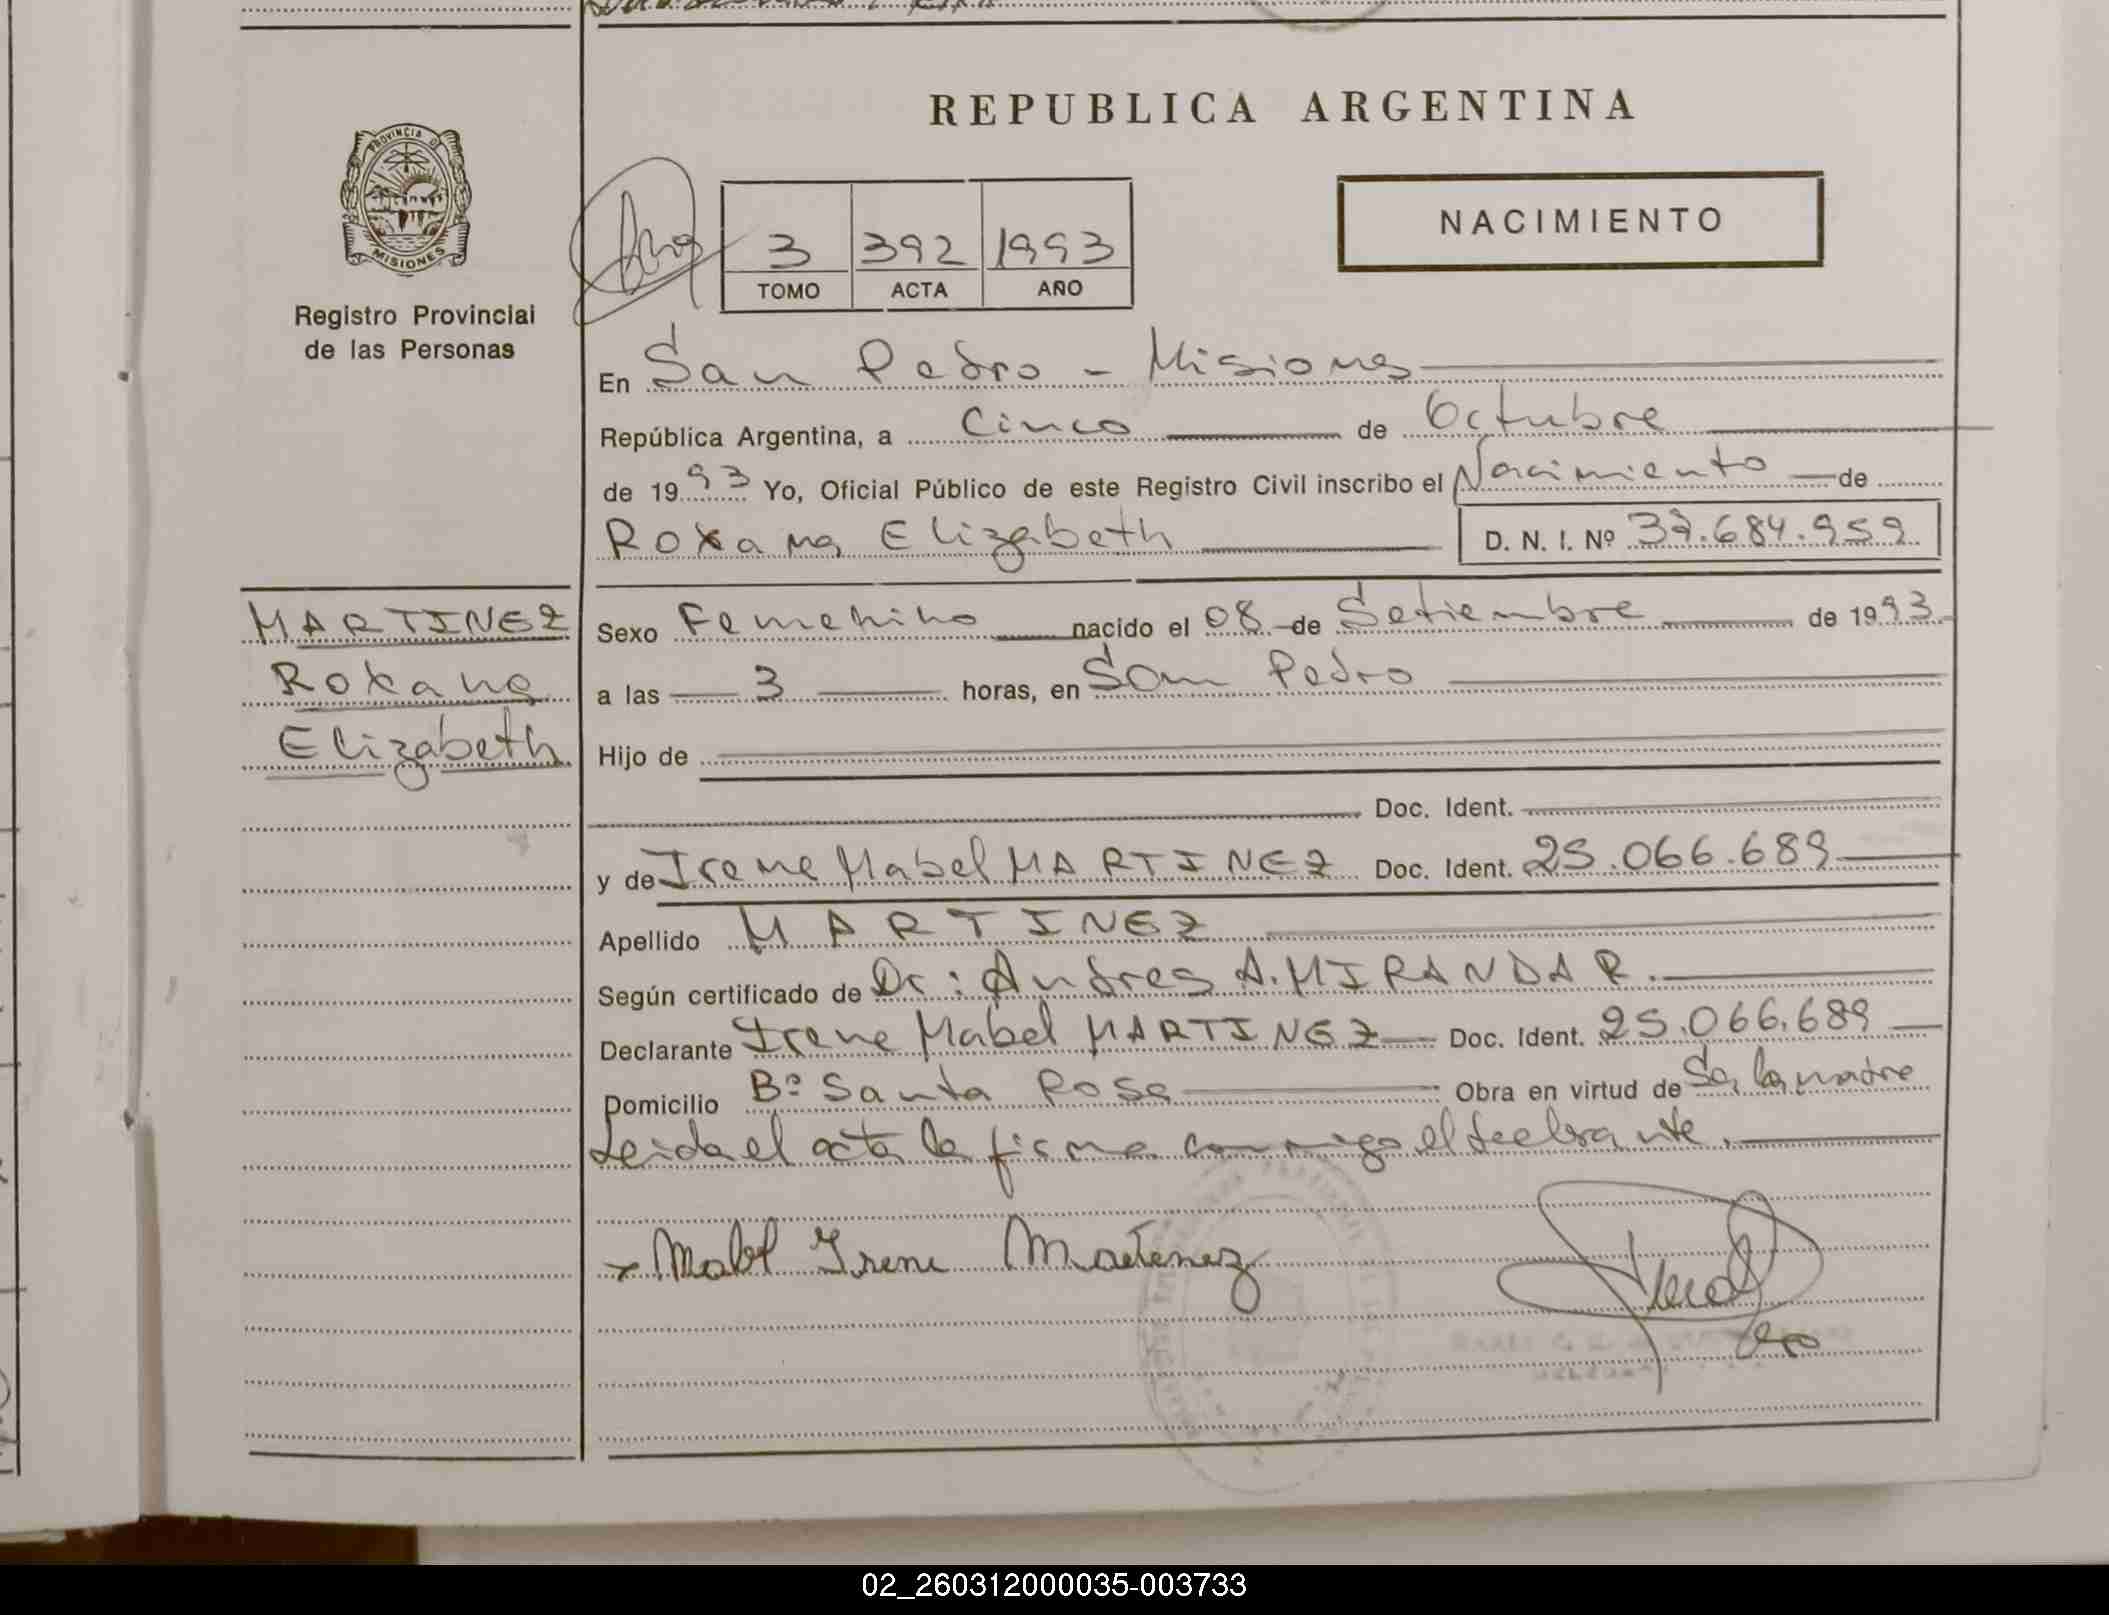 REPUBLICA ARGENTINA
PROVINCIA DE
MISIONES
Registro Provincial
de las Personas
NACIMIENTO
3 392 1993
TOMO ACTA AÑO
En San Pedro - Misiones
República Argentina, a Cinco de Octubre
de 1993 Yo, Oficial Público de este Registro Civil inscribo el Nacimiento de
Roxana Elizabeth D. N. I. Nº 37.684.959
MARTINEZ
Roxana
Elizabeth
Sexo Femenino nacido el 08 de Setiembre de 1993
a las 3 horas, en San Pedro
Hijo de
Doc. Ident.
y de Irene Mabel MARTINEZ Doc. Ident. 25.066.689
Apellido MARTINEZ
Según certificado de Dr: Andres A. MIRANDA R.
Declarante Irene Mabel MARTINEZ Doc. Ident. 25.066.689
Domicilio Bº Santa Rosa Obra en virtud de Se, la madre
Leida el acta la firma conmigo el declarante.
x Mabel Irene Martinez
02_260312000035-003733